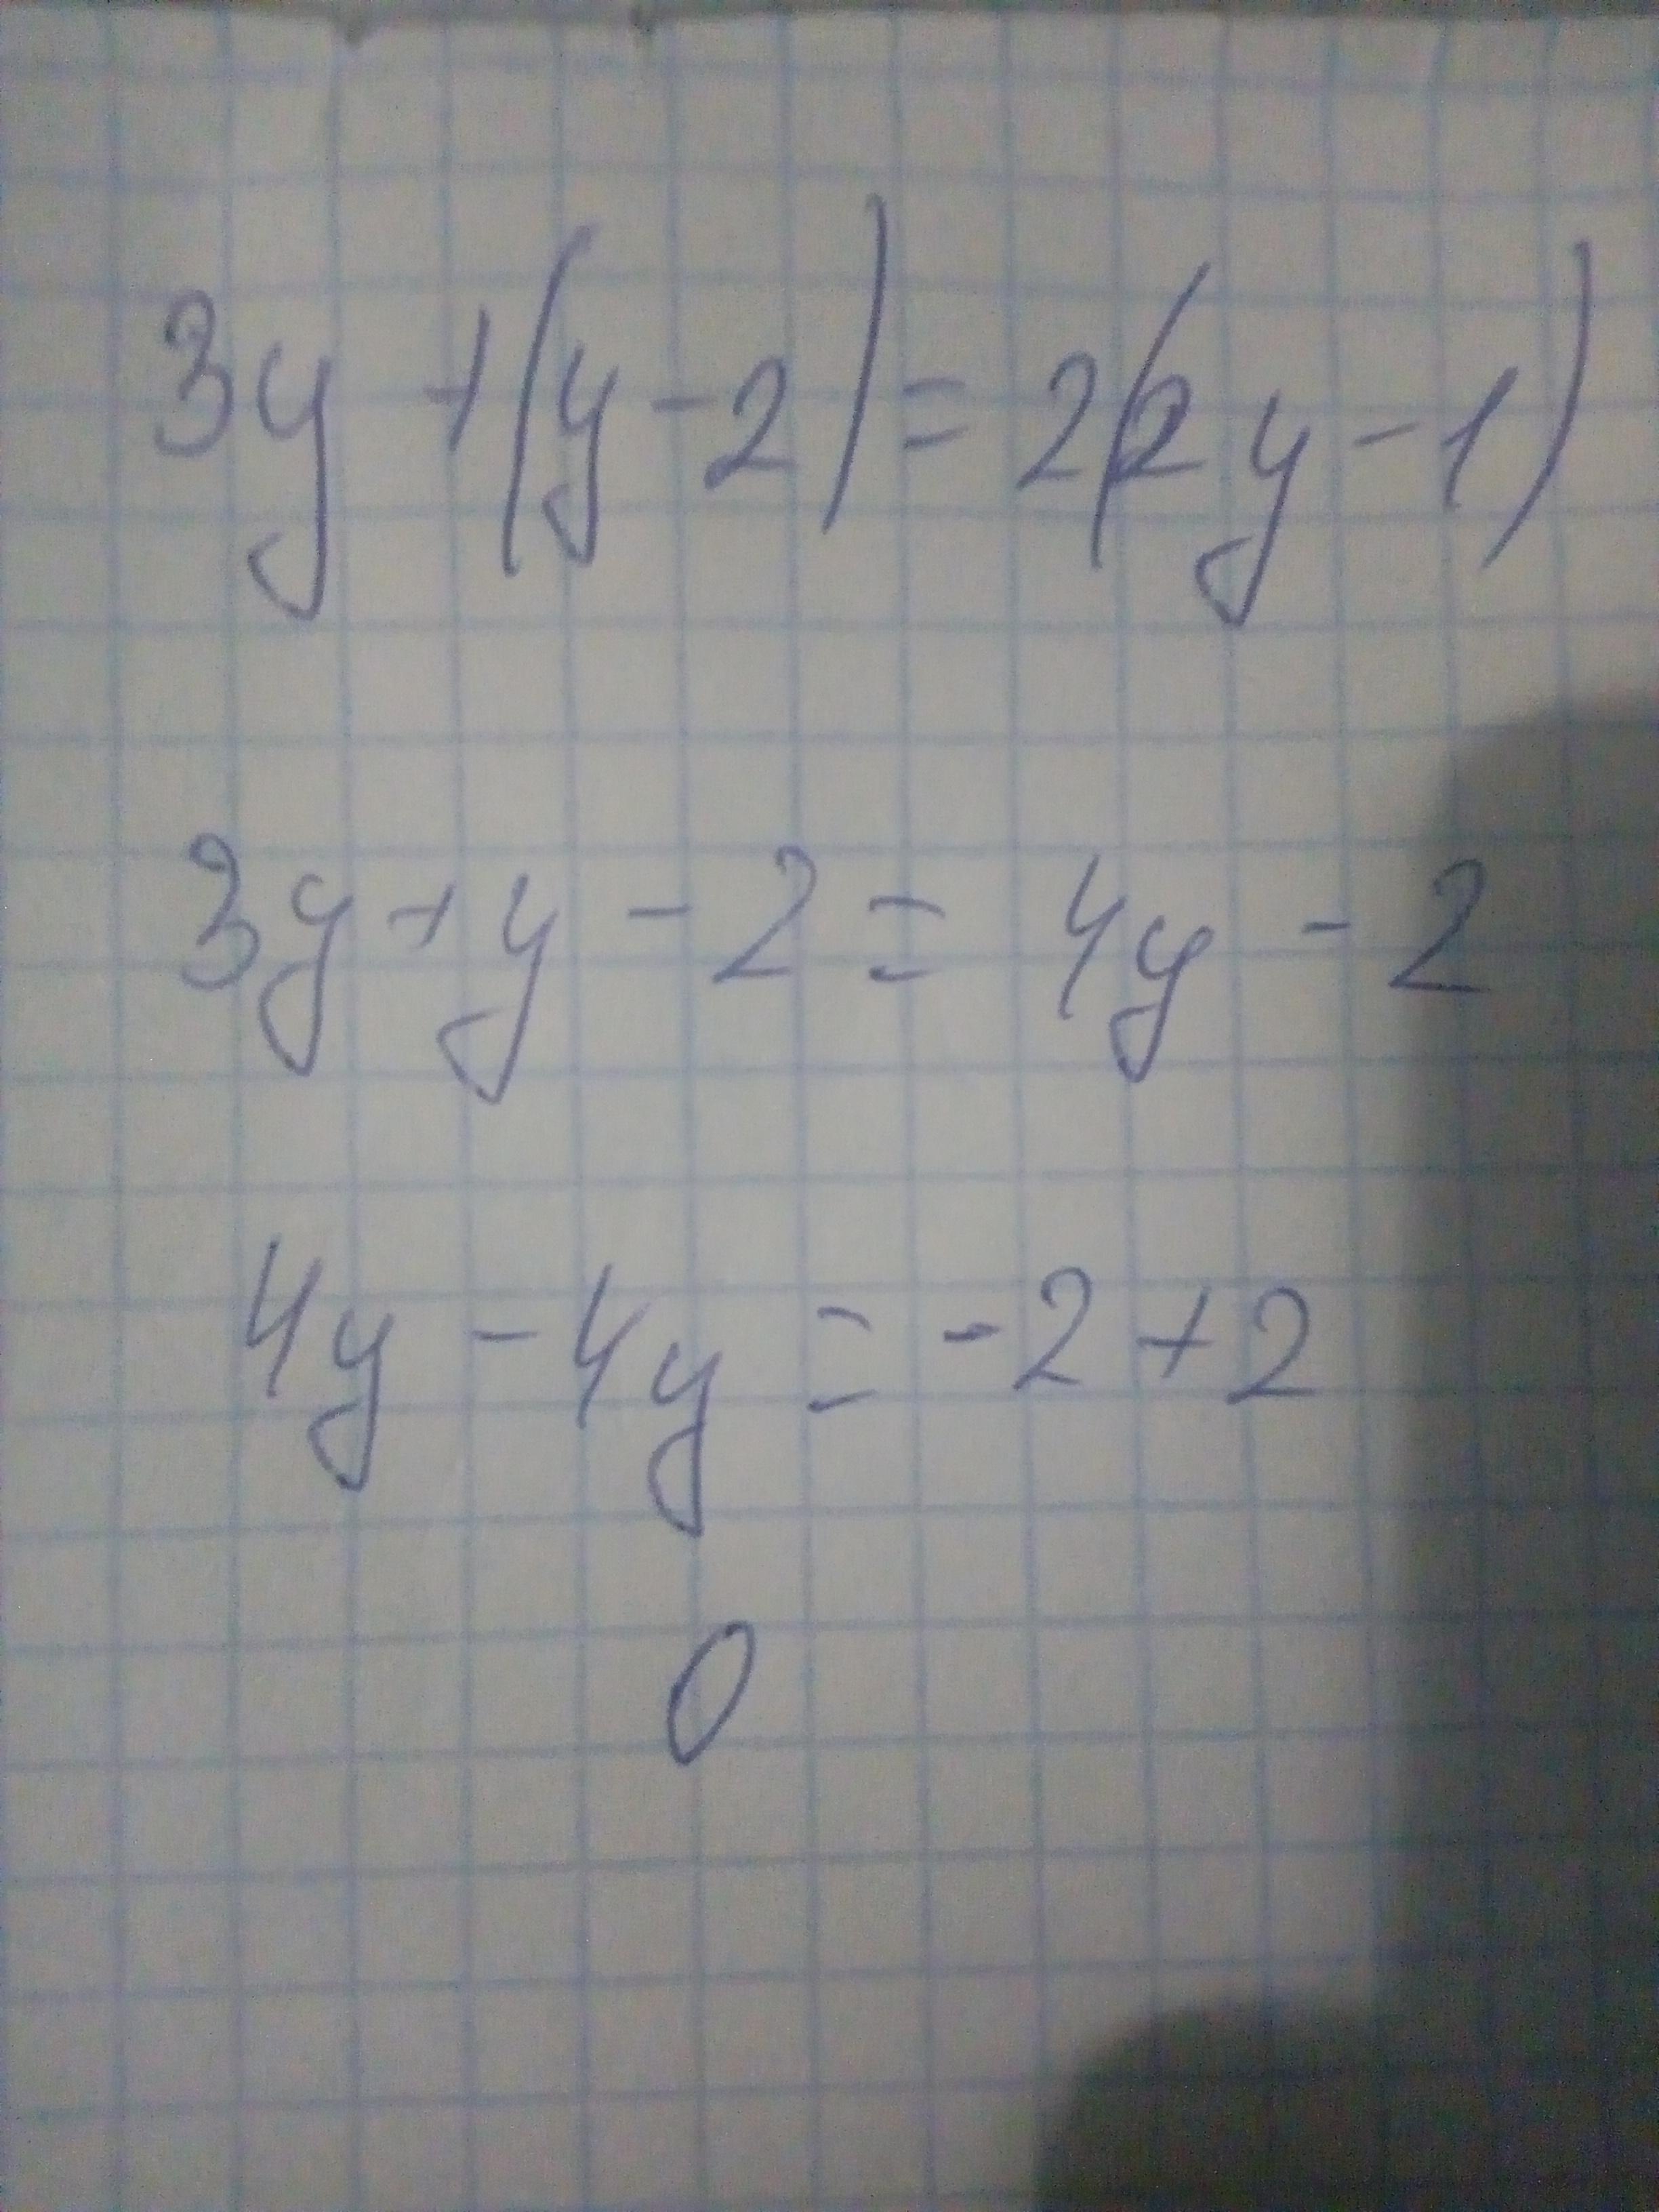 3y + (y - 2) = 2(2y - 1)
3y + y - 2 = 4y - 2
4y - 4y = -2 + 2
0